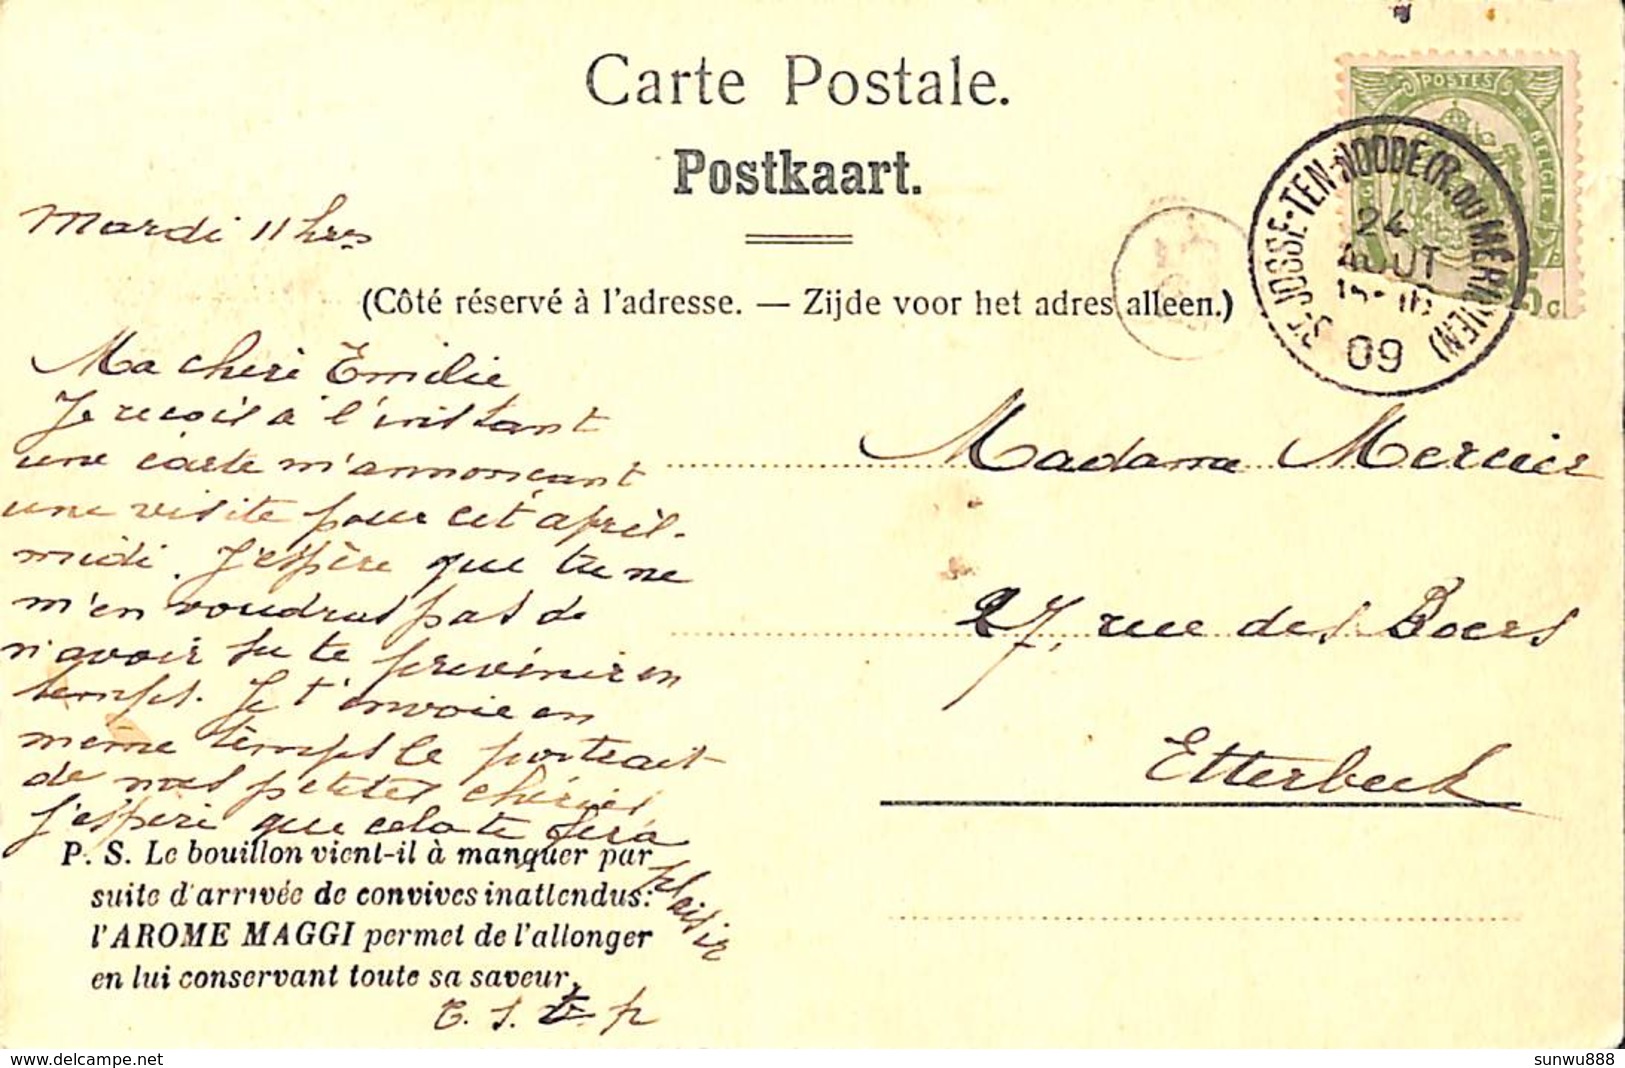 Carte Postale.
Postkaart.
Mardi 11 hrs
(Côté réservé à l'adresse. — Zijde voor het adres alleen.)
POSTES
BELGIE
ST JOSSE-TEN-NOODE (R. DU MERIDIEN)
24
AOUT
09
Ma cheri Emilie
Je reçois à l'instant
une carte m'annonçant
une visite pour cet après-
midi. J'espère que tu ne
m'en voudras pas de
n'avoir su te prévenir en
temps. Je t'envoie en
même temps le portrait
de mes petites chéries
j'espère que cela te fera
plaisir
Madame Mercier
27, rue des Boers
Etterbeek
P. S. Le bouillon vient-il à manquer par
suite d'arrivée de convives inattendus:
l'AROME MAGGI permet de l'allonger
en lui conservant toute sa saveur.
T. S. t. p
delcampe.net
sunwu888